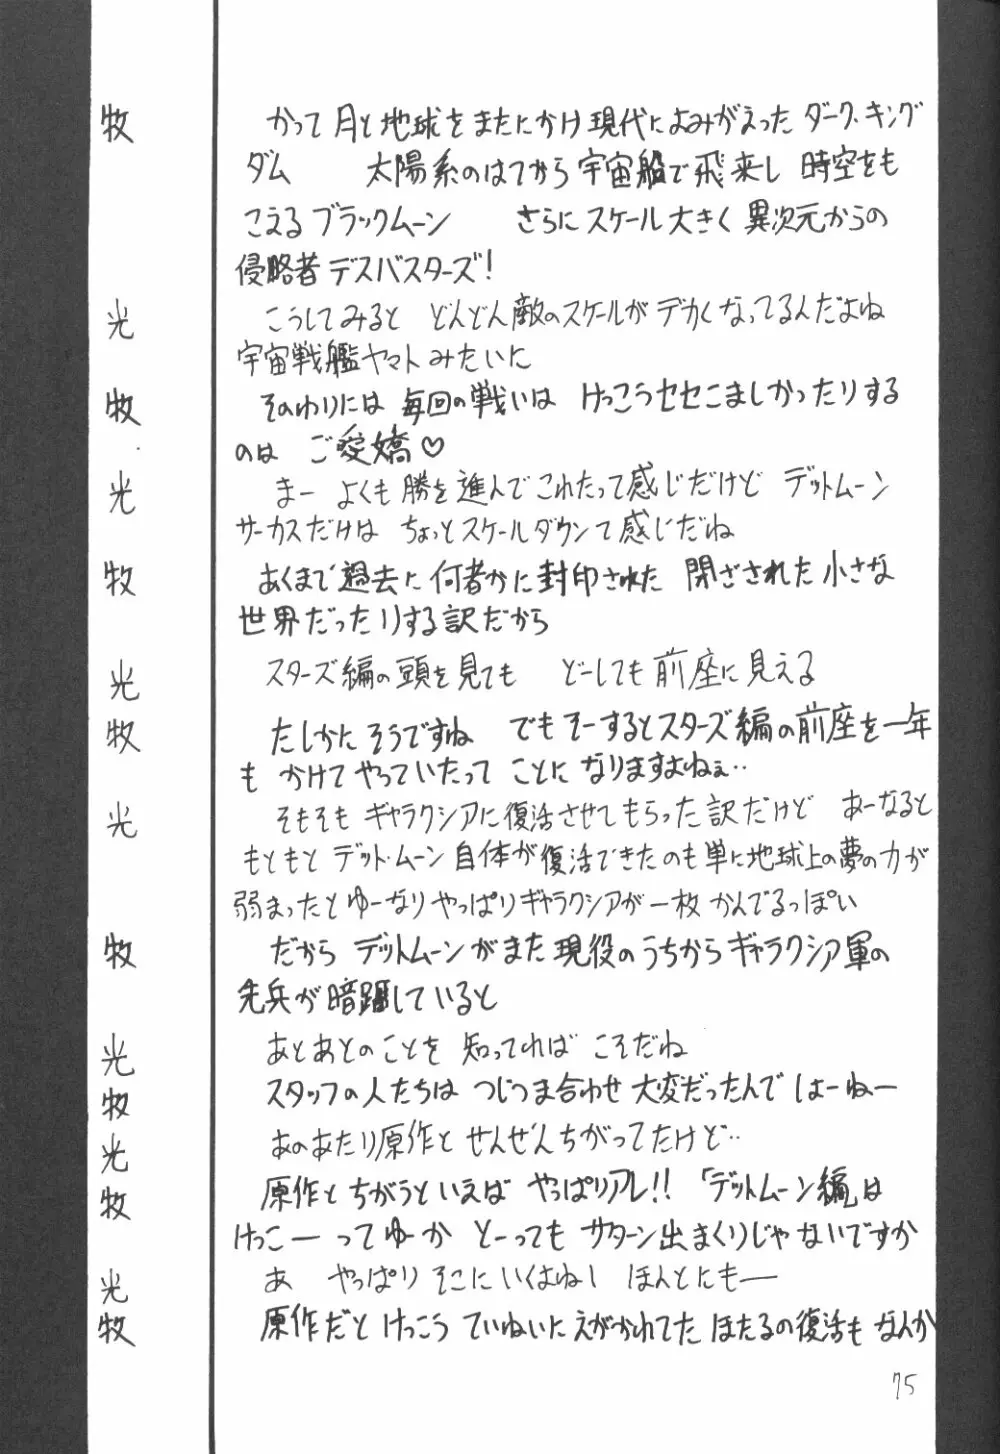 牧 かって月と地球をまたにかけ現代によみがえったダーク、キング
ダム 太陽系のはてから宇宙船で飛来し 時空をも
こえるブラックムーン さらにスケール大きく異次元からの
侵略者デスバスターズ!
光 こうしてみると どんどん敵のスケールがデカくなってるんだよね
宇宙戦艦ヤマトみたいに
牧 そのわりには 毎回の戦いは けっこうセセこましかったりする
のは ご愛嬌♡
光 まー よくも勝を進んでこれたって感じだけど デットムーン
サーカスだけは ちょっとスケールダウンて感じだね
牧 あくまで過去に何者かに封印された 閉ざされた小さな
世界だったりする訳だから
光 スターズ編の頭を見ても どーしても前座に見える
牧 たしかにそうですね でもそーするとスターズ編の前座を一年
も かけてやっていたって ことに なりますよねぇ‥
光 そもそも ギャラクシアに復活させてもらった訳だけど あーなると
もともと デット・ムーン自体が復活できたのも単に地球上の夢の力が
弱まったとゆーなりやっぱりギャラクシアが一枚かんでるっぽい
牧 だから デットムーンがまた現役のうちからギャラクシア軍の
先兵が暗躍していると
光 あとあとのことを 知ってれば こそだね
牧 スタッフの人たちは つじつま合わせ大変だったんでしょーねー
光 あのあたり原作と ぜんぜんちがってたけど‥
牧 原作とちがうといえば やっぱりアレ!!「デットムーン編」は
けっこーってゆーか とーっても サターン出まくりじゃないですか
光 あ やっぱり そこにいくよねー ほんとにもー
牧 原作だと けっこう ていねいにえがかれてた ほたるの復活も なんか
75